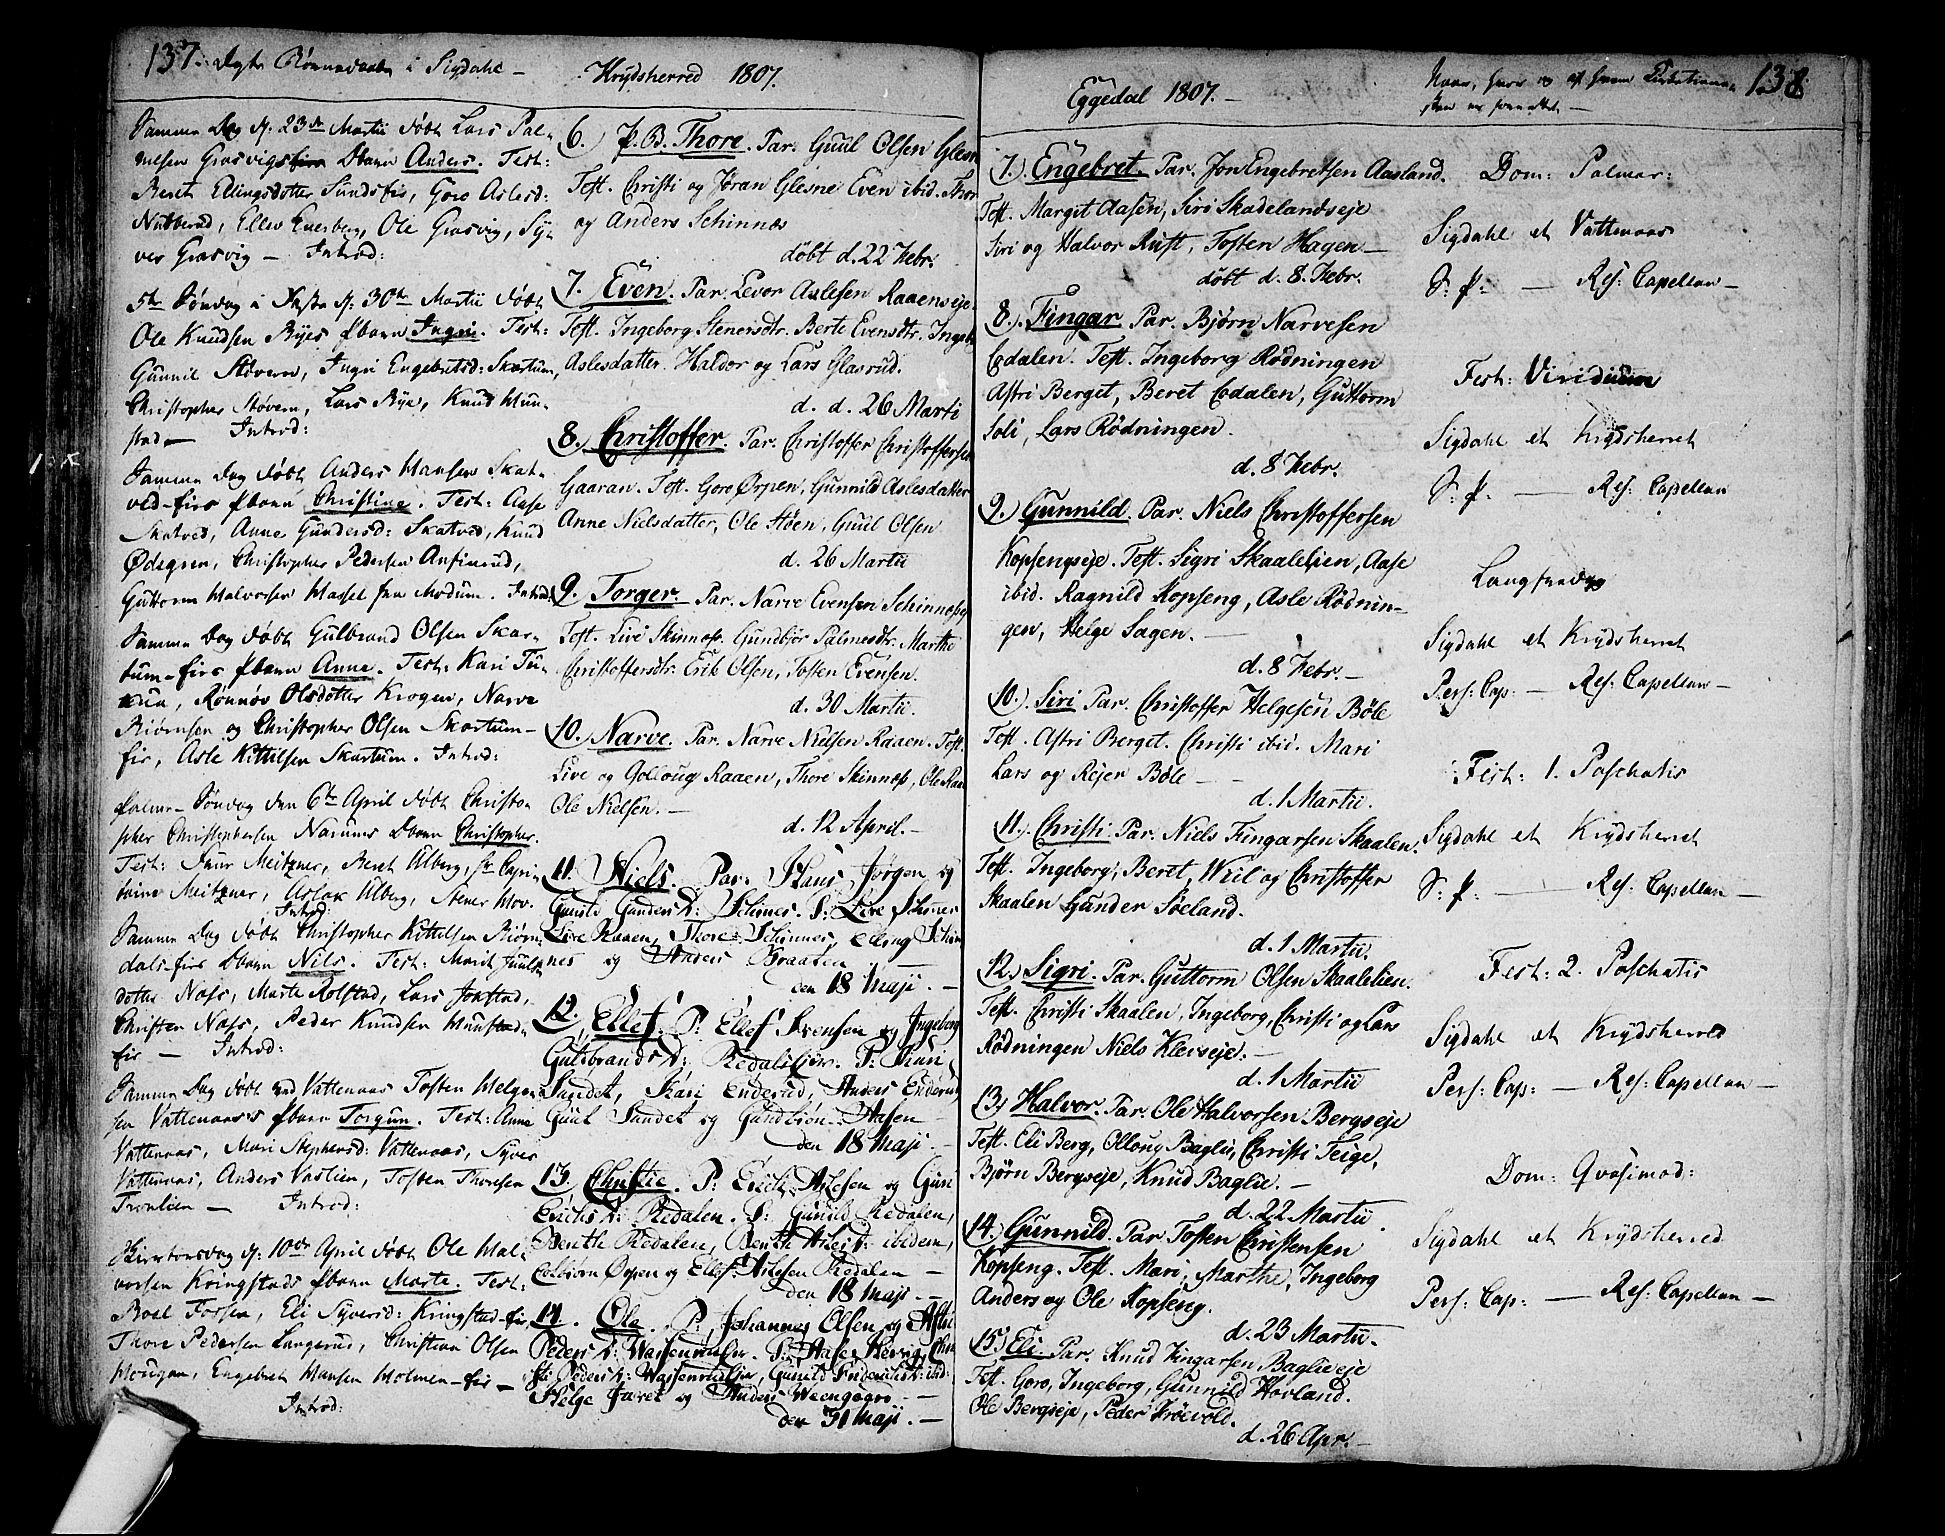 137. Døpte Rønnevaabn i Sigdahl –
Samme Dag d. 23de Martii døbt Lars Pal-
mesen Grasvigs Dbarn Anders. Test:
Beret Ellingsdotter Sundsfir, Goro Aslesd:
Nubberud, Ellev Enerberg, Ole Grasvig, Sy-
ver Grasvig – Introd:
5te Søndag i Faste d. 30te Martii døbt
Ole Knudsen Ryes Pbarn Ingri. Test:
Gunnil Støvern, Ingri Engebretsd: Skartum,
Christopher Støvern, Lars Rye, Knud Mun-
stad – Introd:
Samme Dag døbt Anders Hansen Skat-
ved-firs Pbarn Christine. Test: Aase
Skatved, Anne Gundersd: Skatved, Knud
Ødegren, Christopher Pedersen Anfinrud,
Guttorm Halvorsen Hassel fra Modum. Introd:
Samme Dag døbt Gulbrand Olsen Skar-
tum-firs Pbarn Anne. Test: Kari
Rønnøv Olsdotter Krogen, Narve
Biørnsen og Christopher Olsen Skartum-
fir, Asle Kittilsen Skartum. Introd:
Palme-Søndag den 6te April døbt Christo-
pher Christophersen Narumes Dbarn Christopher.
Test: Meitzner, Beret Alberg, Hr Capi-
taine Meitzner, Aslak Alberg, Stener Mov.
Introd:
Samme Dag døbt Christopher Kittilsen Biørn-
dals-firs Dbarn Nils. Test: Marit Juuls-
dotter Nass, Marte Rolstad, Lars Jonstad,
Christen Nass, Peder Knudsen Munstad-
fir – Introd:
Samme Dag døbt ved Vattenaas Tosten Helge-
sen Vattenaas's Pbarn Torgun. Test: Anne
Vattenaas, Mari Stephensd: Vattenaas, Syver
Vattenaas, Anders Vaslien, Tosten Thoresen
Tronlien – Introd:
Skiertorsdag d. 10de April døbt Ole Hal-
vorsen Kringstads Pbarn Marte. Test:
Boel Fossen, Eli Syversd: Kringstad-fir,
Thore Pedersen Langerud, Christian Olsen
Engebret Hansen Holmen-fir –
Introd:
Krydsherred 1807.
6.) P. B. Thore. Par. Guul Olsen Glesn
Test. Christi og Jøran Glesne Even ibid. Thor
og Anders Schinnes
döbt d. 22 Febr.
7. Even. Par. Levor Aslesen Raaenseje.
Test. Ingeborg Stenersdtr. Berte Evensdtr. Ingeb.
Aslesdatter. Haldor og Lars Glasrud.
d. d. 26 Marti
8. Christoffer. Par. Christoffer Christoffersen
Gaaran. Test. Goro Ørpen, Gunnild Aslesdatter
Anne Nielsdatter, Ole Støen, Guul Olsen
d. 26 Martii
9. Torger. Par. Narve Evensen Schinnese
Test. Live Skinnes. Gundbjør Palmesdtr. Marthe
Christoffersdtr. Erik Olsen, Tosten Evensen.
d. 30 Martii.
10. Narve. Par. Narve Nielsen Raaen. Test.
Live og Golloug Raaen, Thore Skinnes, Ole Raa
Ole Nielsen. –
d. 12 April. –
11. Niels Par: Hans Jørgen og
Gunild Gunders D: Schines. T: Live Schinnes
Live Raaen, Thore Schinnes, Elling Schin
nes og Anders Braaten –
den 18 Maji. –
12. Ellef. P: Ellef Svensen og Ingeborg
Gulsbrands D: Redalsejer. T: Kari
Sundet, Kari Enderud, Anders Enderud
Guul Sundet og Gundbiøn Aasen
den 18 Maji –
13. Christie. P: Erich Aslesen og Guri
Erichs D: Redalen. T: Gunild Redalen,
Benthe Redalen, Benthe Asles D: ibidem,
Colbiörn Ørpen og Ellef Aslesen Redalen –
den 18 Maji –
14. Ole. P: Johannes Olsen og Astri
Peders D: Wassenrudejer. T: Aase Hervig, Chri
sti Peders D: Wassenrudejer, Gunild Friderichs D: ibid:
Helge Juret og Anders Weengagro. –
den 31 Maji. –
Eggedal 1807. –
7.) Engebret. Par. Jon Engebretsen Aasland.
Test. Margit Aasen, Siri Skadelandseje
Siri og Halvor Rust, Tosten Hagen –
döbt d. 8. Febr.
8.) Fingar Par. Bjørn Narvesen
Edalen. Test. Ingeborg Rödningen
Astri Berget, Beret Edalen, Guttorm
Soli, Lars Rödningen.
d. 8 Febr.
9.) Gunnild. Par. Niels Christoffersen
Kopsengseje. Test. Sigri Skaalelien, Aase
ibid. Ragnild Kopseng, Asle Rödnin-
gen, Helge Sagen. –
d. 8 Febr. –
10.) Siri Par. Christoffer Helgesen Böle
Test. Astri Berget. Christi ibid. Mari
Lars og Rejer Böle –
d. 1 Martii.
11.) Christi. Par. Niels Fingarsen Skaalen.
Test. Ingeborg, Beret, Wiil og Christoffer
Skaalen Gunder Söeland.
d. 1 Martii.
12.) Sigri. Par. Guttorm Olsen Skaalelien.
Test. Christi Skaalen, Ingeborg, Christi og Lars
Rødningen Niels Kleivseje. –
d. 1 Martii
13.) Halvor. Par. Ole Halvorsen Bergseje
Test. Eli Berg, Olloug Baglie, Christi Teige,
Björn Bergseje, Knud Baglie. –
d. 22 Martii.
14.) Gunnild. Par Tosten Christensen
Kopseng. Test. Mari, Marthe, Ingeborg
Anders og Ole Kopseng.
d. 23 Martii –
15.) Eli. Par. Knud Fingarsen Baglieeje
Test. Goro, Ingeborg, Gunnild Hovland.
Ole Bergseje, Peder Frøevold.
d. 26 Apr. –
Naar, hvor og af hvem Forretninger- 138
skeen er forrettet. –
Dom: Palmar:
Sigdahl et Vattenaas
S: P: – Res: Capellan –
Fest: Viridium
Sigdahl et Krydsherret
S: P: – Res: Capellan
Langfredag
Sigdahl et Krydsherret
Pers: Cap: – Res: Capellan –
Fest: 1. Paschatis
Sigdahl et Krydsherret
S: P: – Res: Capellan –
Fest: 2. Paschatis
Sigdahl et Krydsherred
Pers: Cap: – Res: Capellan –
Dom: Qvasimod:
Sigdahl et Krydsherred
Pers: Cap: – Res: Capellan –